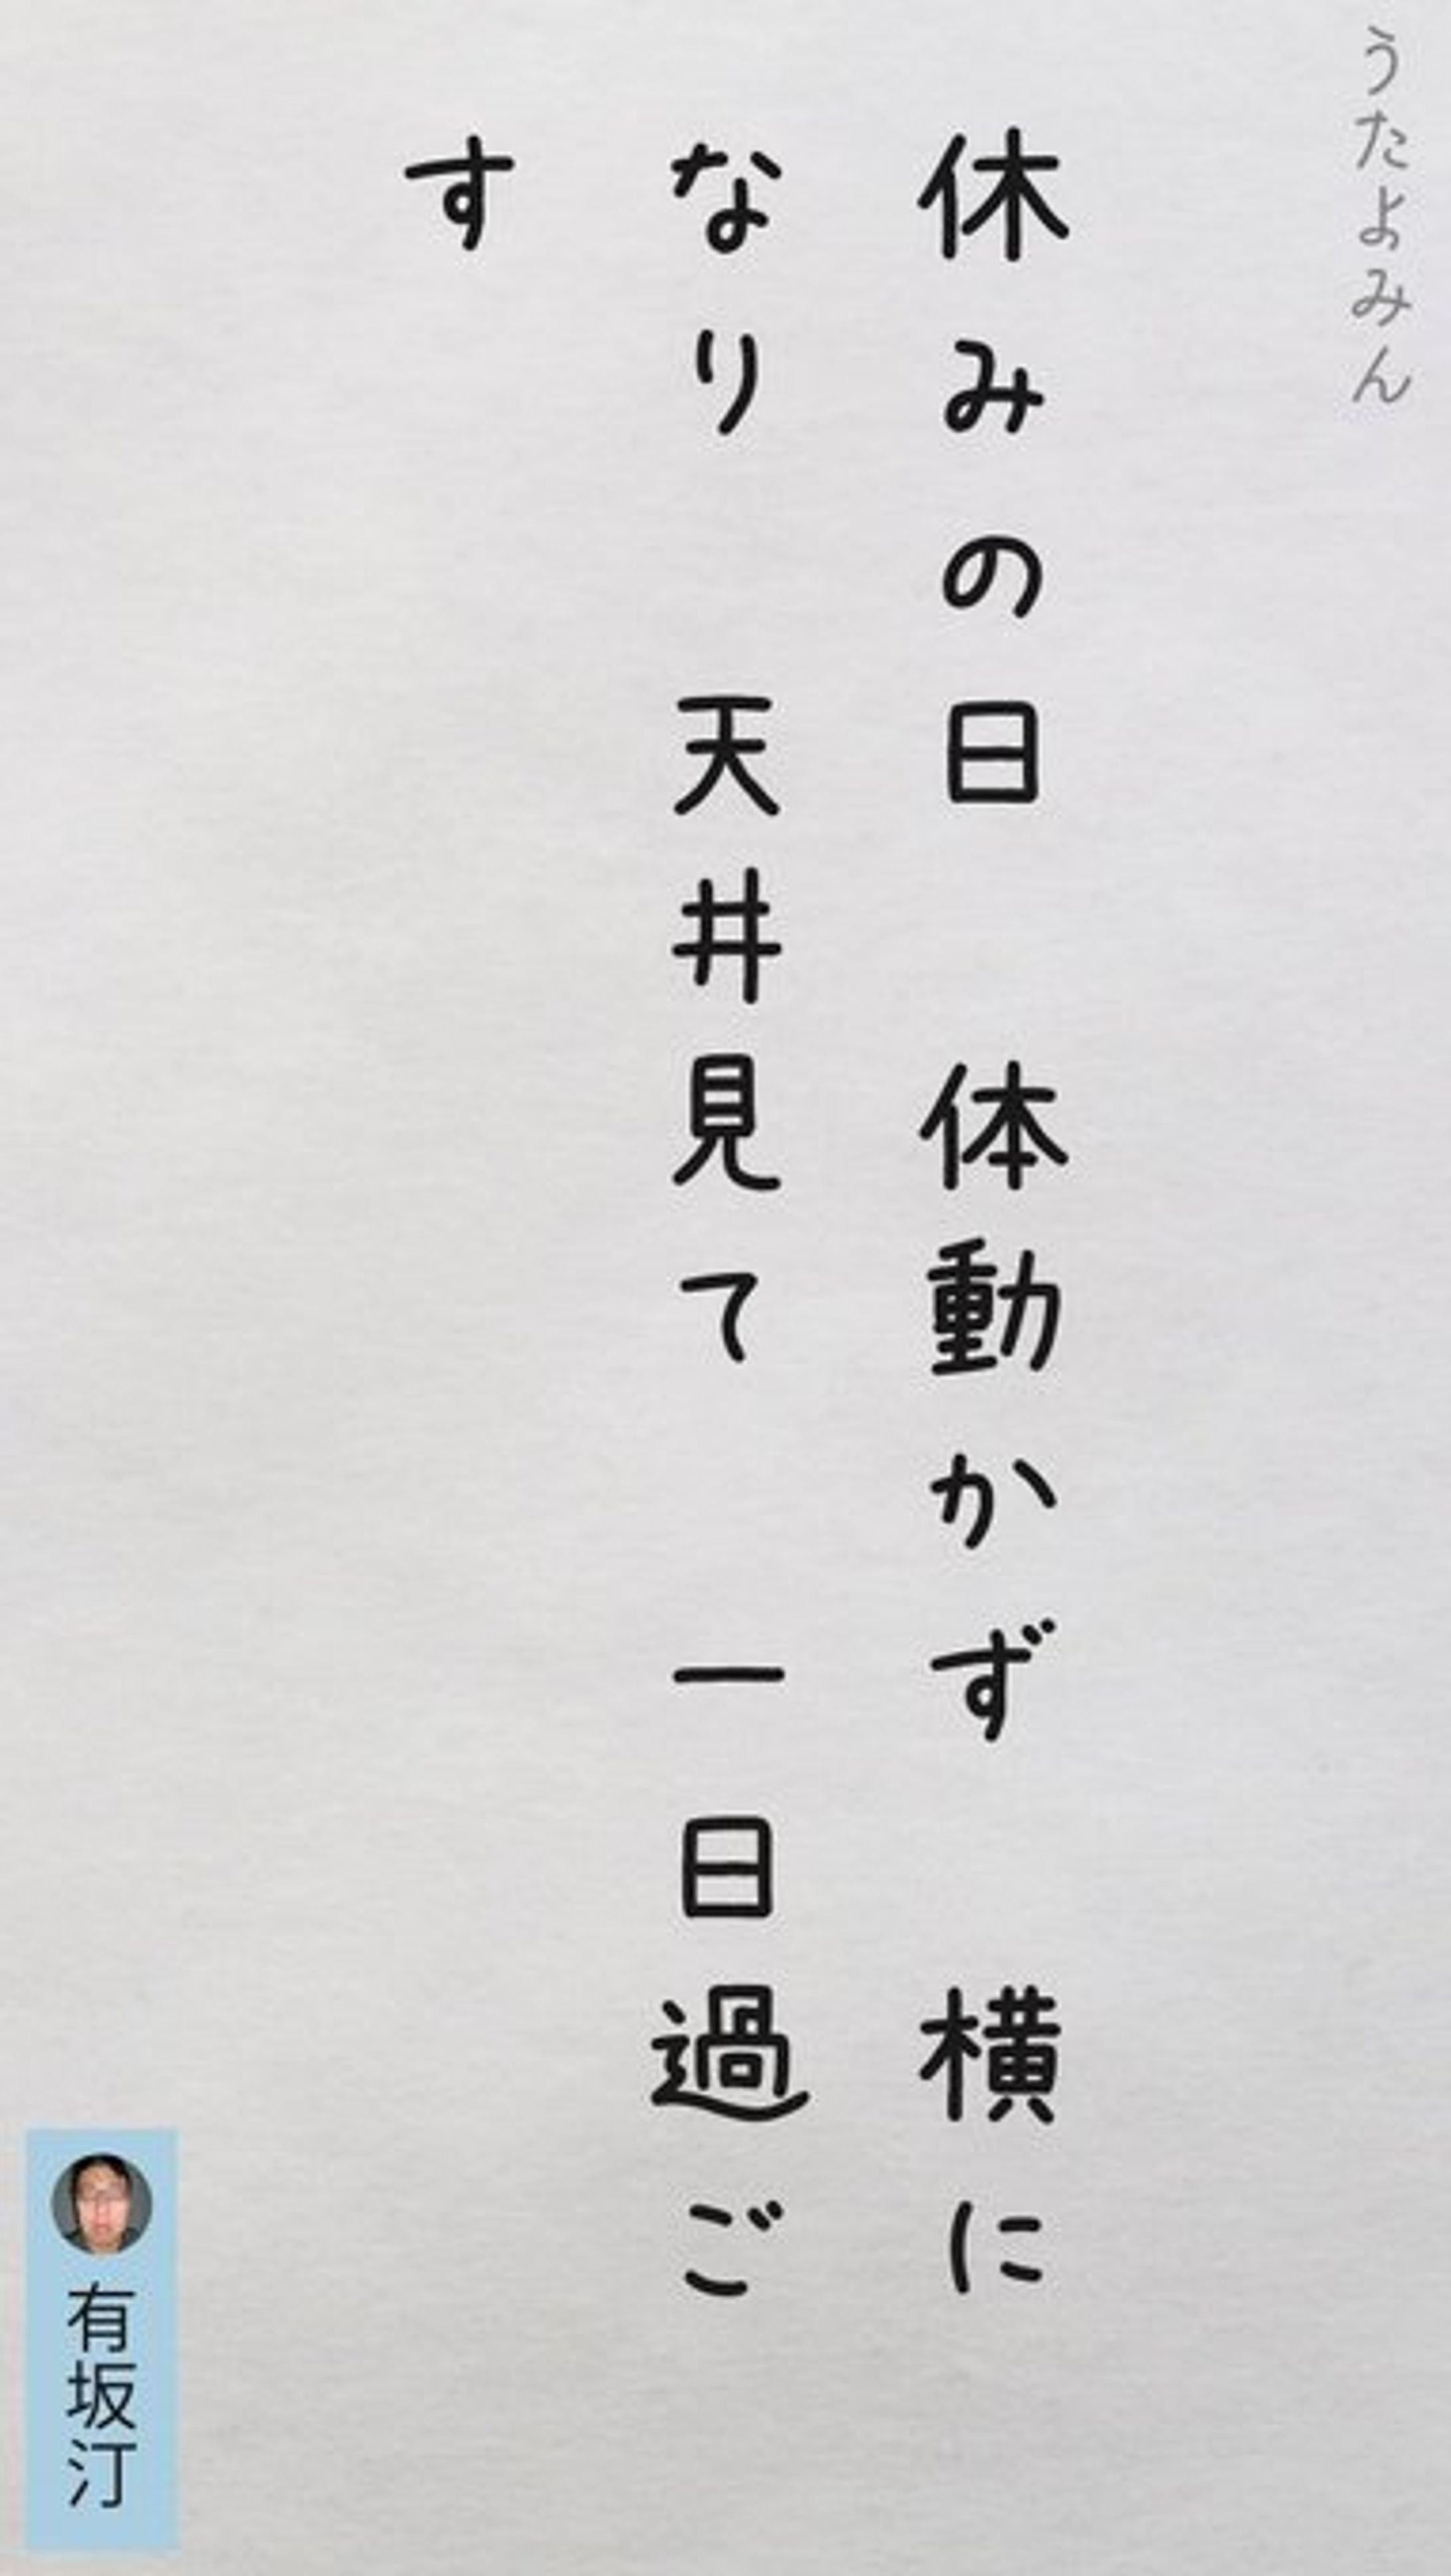 うたよみん
休みの日　体動かず　横に
なり　天井見て　一日過ご
す
有坂汀